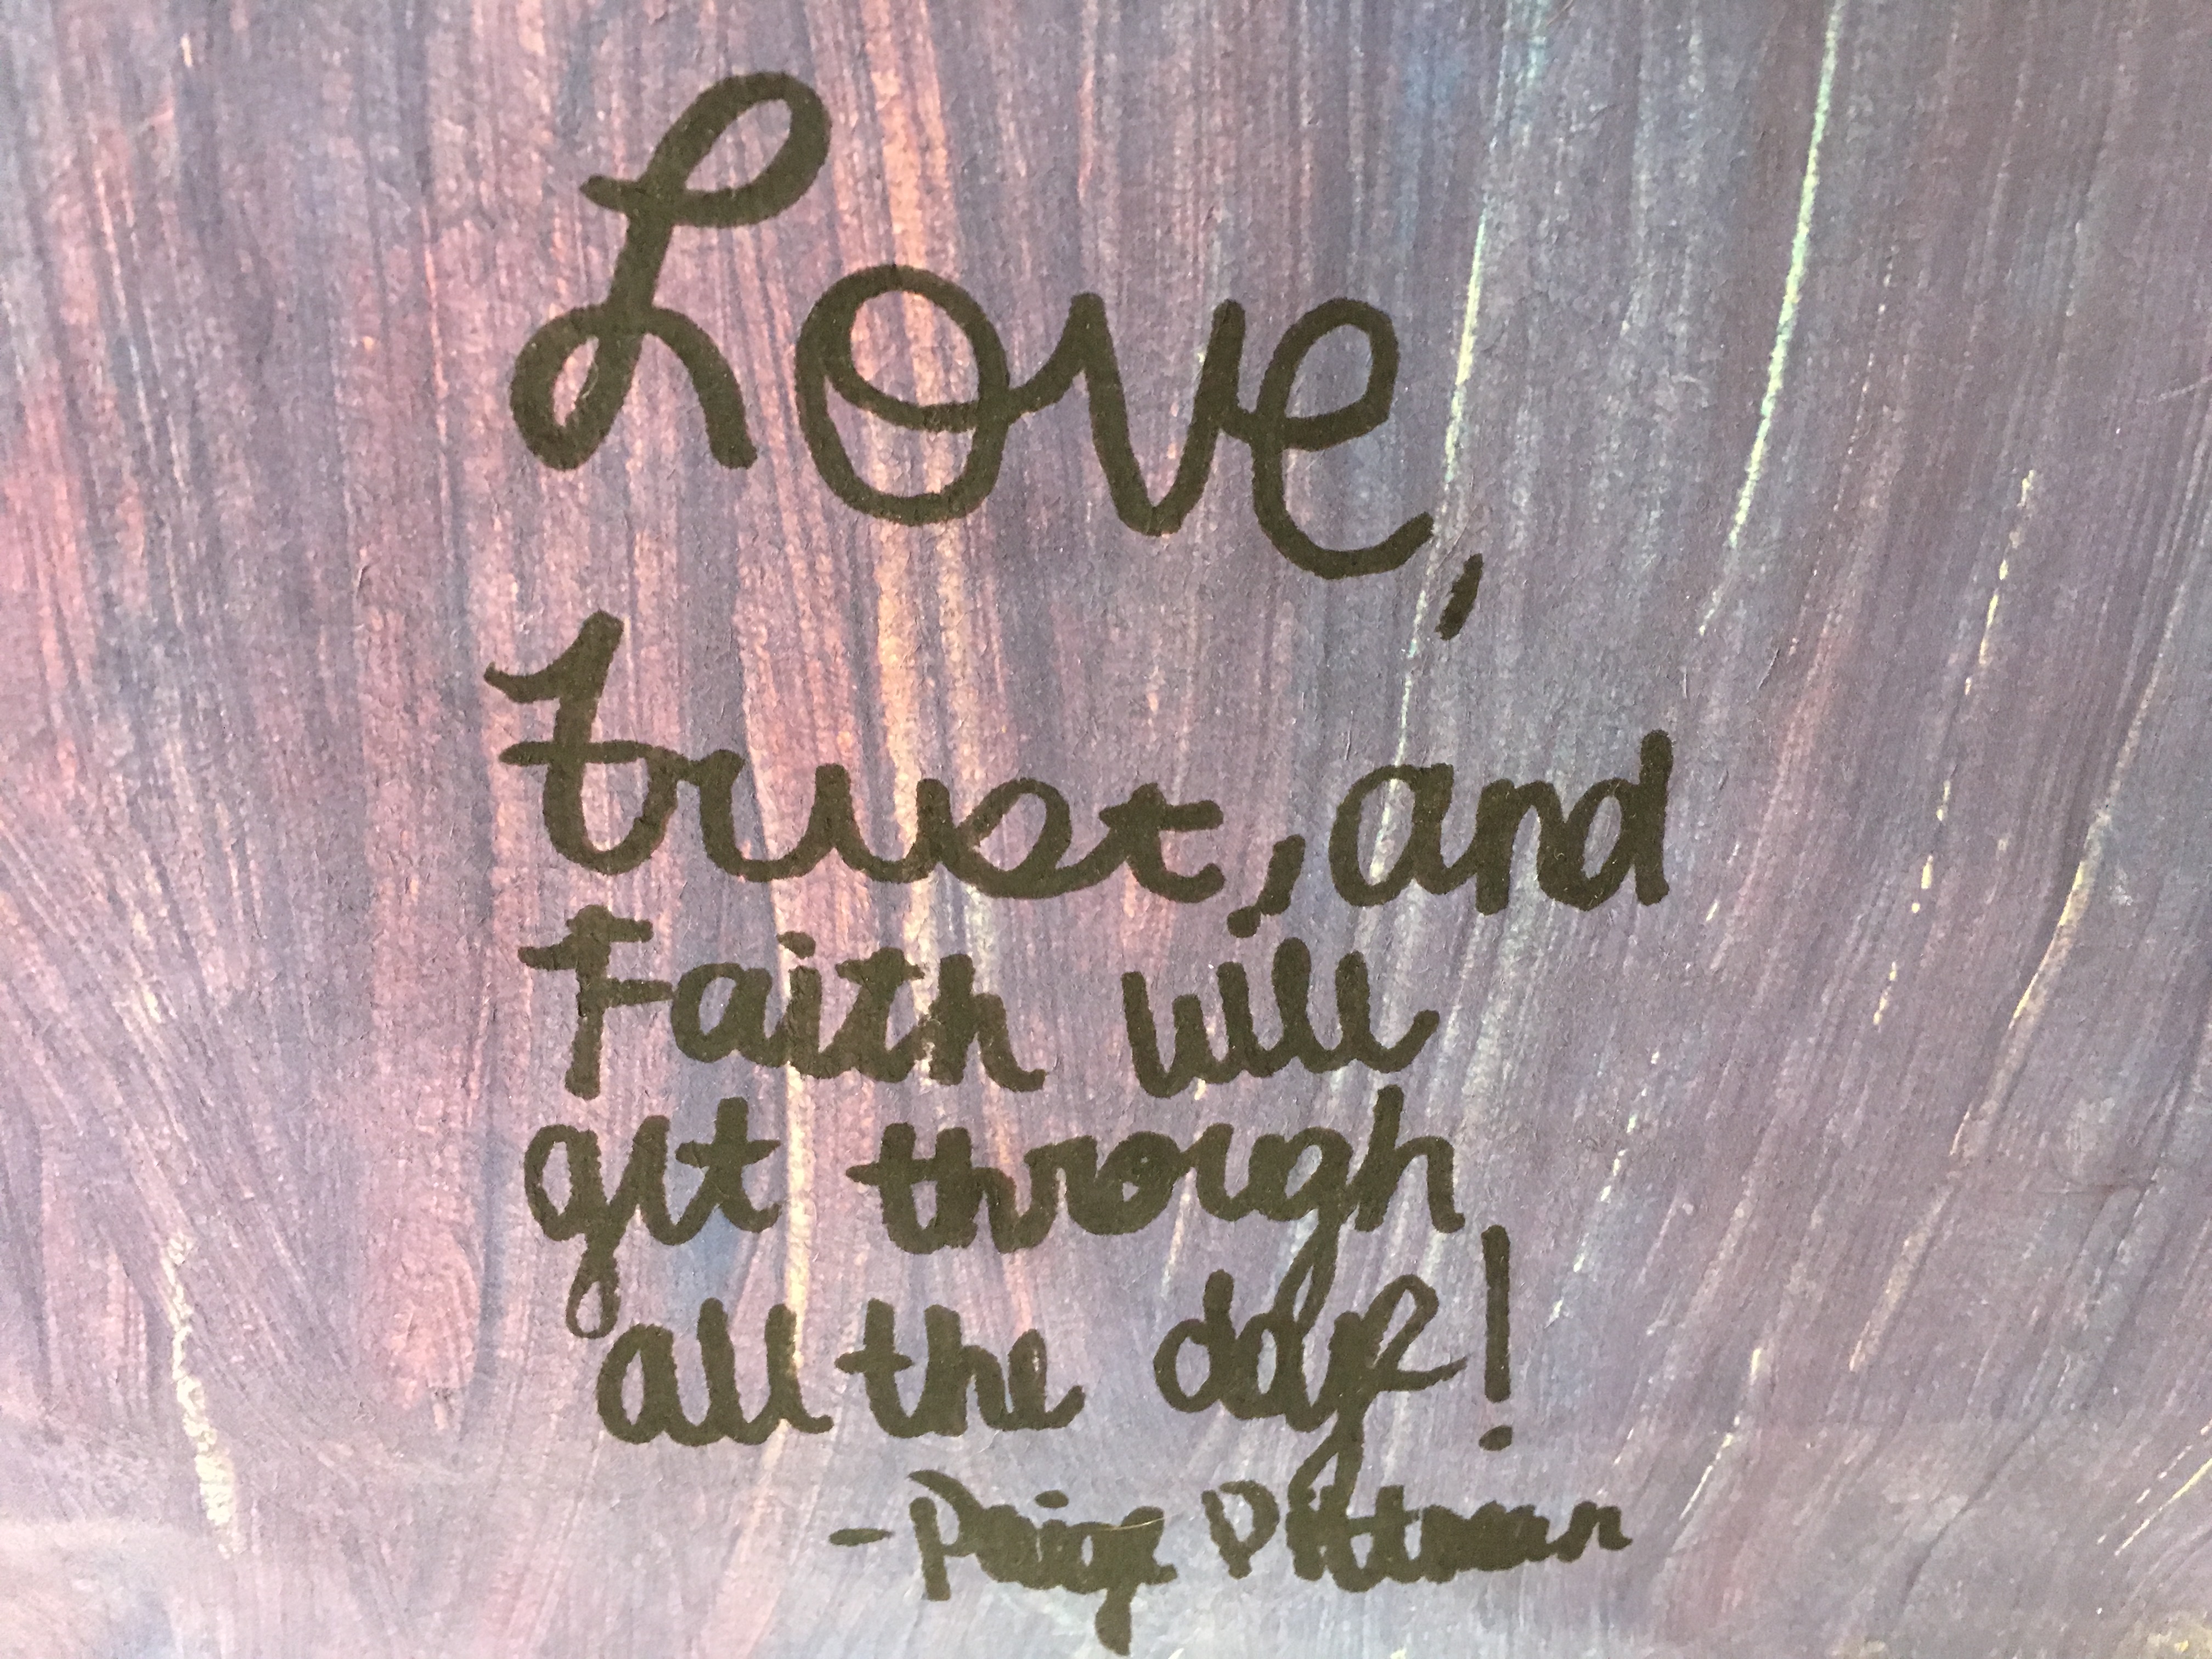 Love,
trust, and
Faith will
get through
all the days!
- Paige Pittman